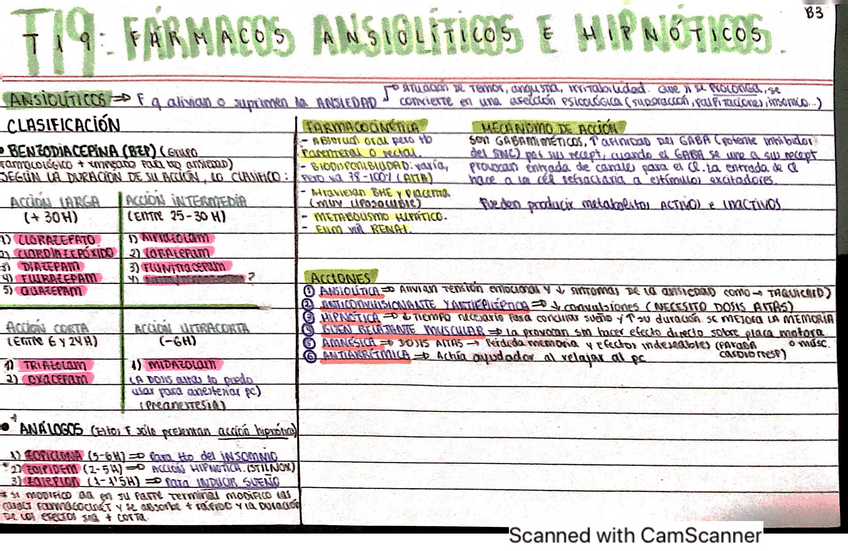 B3
T19: FÁRMACOS ANSIOLÍTICOS E HIPNÓTICOS.
ANSIOLÍTICOS ⇒ F q alivian o suprimen la ANSIEDAD
situación de temor, angustia, irritabilidad. Que si se PROLONGA, se
convierte en una afección psicológica (sudoración, palpitaciones, insomnio...)
CLASIFICACIÓN
• BENZODIACEPINA (BZP) (Grupo
farmacológico + empleado para tto ansiedad)
SEGÚN LA DURACIÓN DE SU ACCIÓN, LO CLASIFICO:
ACCIÓN LARGA
(+ 30H)
1) CLORAZEPATO
2) CLORDIAZEPÓXIDO
3) DIAZEPAM
4) FLURAZEPAM
5) QUAZEPAM
ACCIÓN INTERMEDIA
(ENTRE 25-30H)
1) ALPRAZOLAM
2) LORAZEPAM
3) FLUNITRACEPAM
4) ?
ACCIÓN CORTA
(ENTRE 6 y 24H)
1) TRIAZOLAM
2) OXACEPAM
ACCIÓN ULTRACORTA
(-6H)
1) MIDAZOLAM
(A DOSIS altas lo puedo
usar para anestesiar pc)
(PREANESTESIA)
• ANÁLOGOS (Estos F sólo presentan acción hipnótica)
1) ZOPICLONA (5-6H) ⇒ Para tto del INSOMNIO
2) ZOLPIDEM (2-5H) ⇒ ACCIÓN HIPNÓTICA (STILNOX)
3) ZALEPLON (1-1'5H) ⇒ PARA INDUCIR SUEÑO
* Si modifico en su parte terminal modifico las
caract farmacocinét y se absorbe + rápido y la duración
de los efectos son + corta.
FARMACOCINÉTICA
- ABSORCIÓN oral pero tto
Parenteral o rectal.
- BIODISPONIBILIDAD: varía,
(ALTA)
- Atraviesan BHE y placenta
(muy liposoluble)
- METABOLISMO HEPÁTICO.
- Elim vía RENAL.
MECANISMO DE ACCIÓN
SON GABAMIMÉTICOS, ↑ afinidad del GABA (potente inhibidor
del SNC) por sus recept, cuando el GABA se une a sus recept
provocan entrada de canales para el Cl. La entrada de Cl
hace a la cél refractaria a estímulos excitadores.
Pueden producir metabolitos ACTIVOS e INACTIVOS
ACCIONES
① ANSIOLÍTICA ⇒ Alivian tensión emocional y ↓ síntomas de la ansiedad como → TAQUICARD)
② ANTICONVULSIONANTE Y ANTIEPILÉPTICA ⇒ ↓ convulsiones (NECESITO DOSIS ALTAS)
③ HIPNÓTICA ⇒ ↓ tiempo necesario para conciliar sueño y ↑ su duración SE MEJORA LA MEMORIA
④ BUEN RELAJANTE MUSCULAR ⇒ la provocan sin hacer efecto directo sobre placa motora
⑤ AMNÉSICA ⇒ DOSIS ALTAS → Pérdida memoria y efectos indeseables (PARADA o músc.
CARDIORESP)
⑥ ANTIARRÍTMICA ⇒ Actúa ayudador al relajar al pc
Scanned with CamScanner